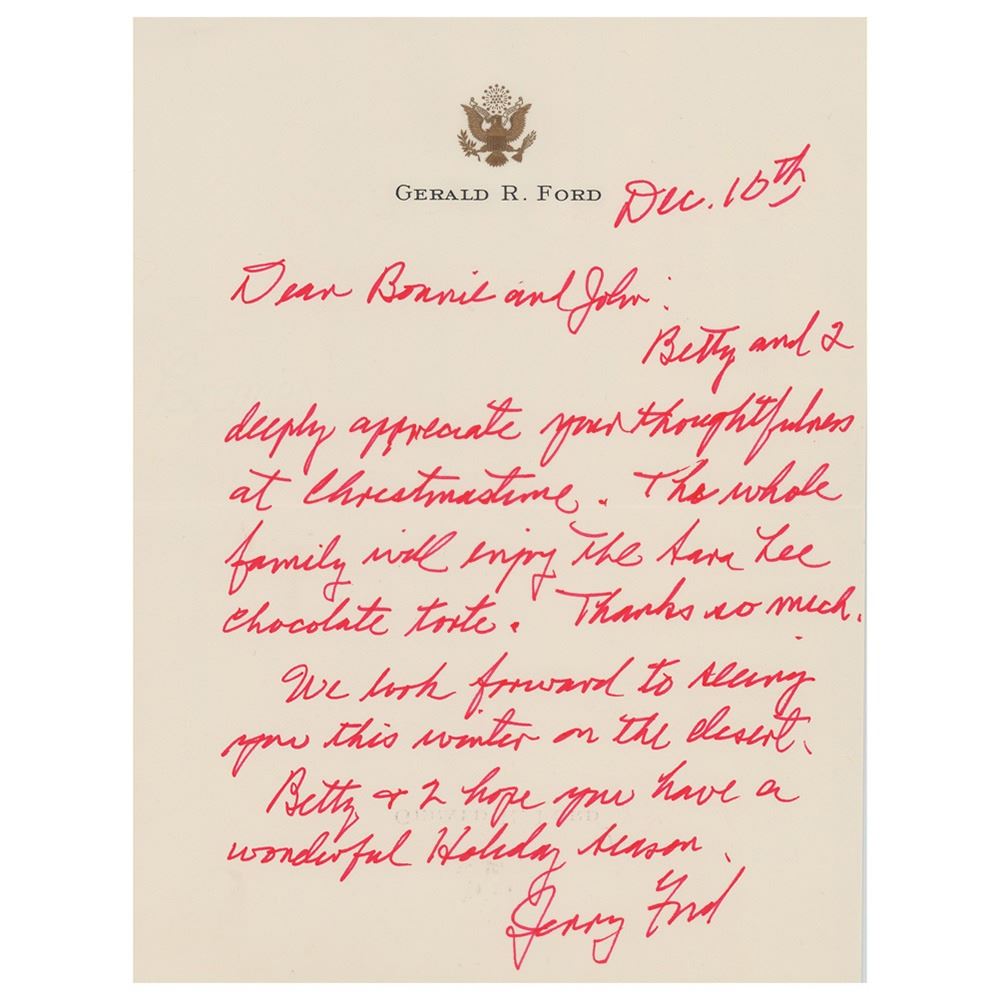 GERALD R. FORD
Dec. 10th
Dear Bonnie and John:
Betty and I
deeply appreciate your thoughtfulness
at Christmastime. The whole
family will enjoy the Sara Lee
chocolate torte. Thanks so much.
We look forward to seeing
you this winter on the desert.
Betty & I hope you have a
wonderful Holiday season.
Jerry Ford